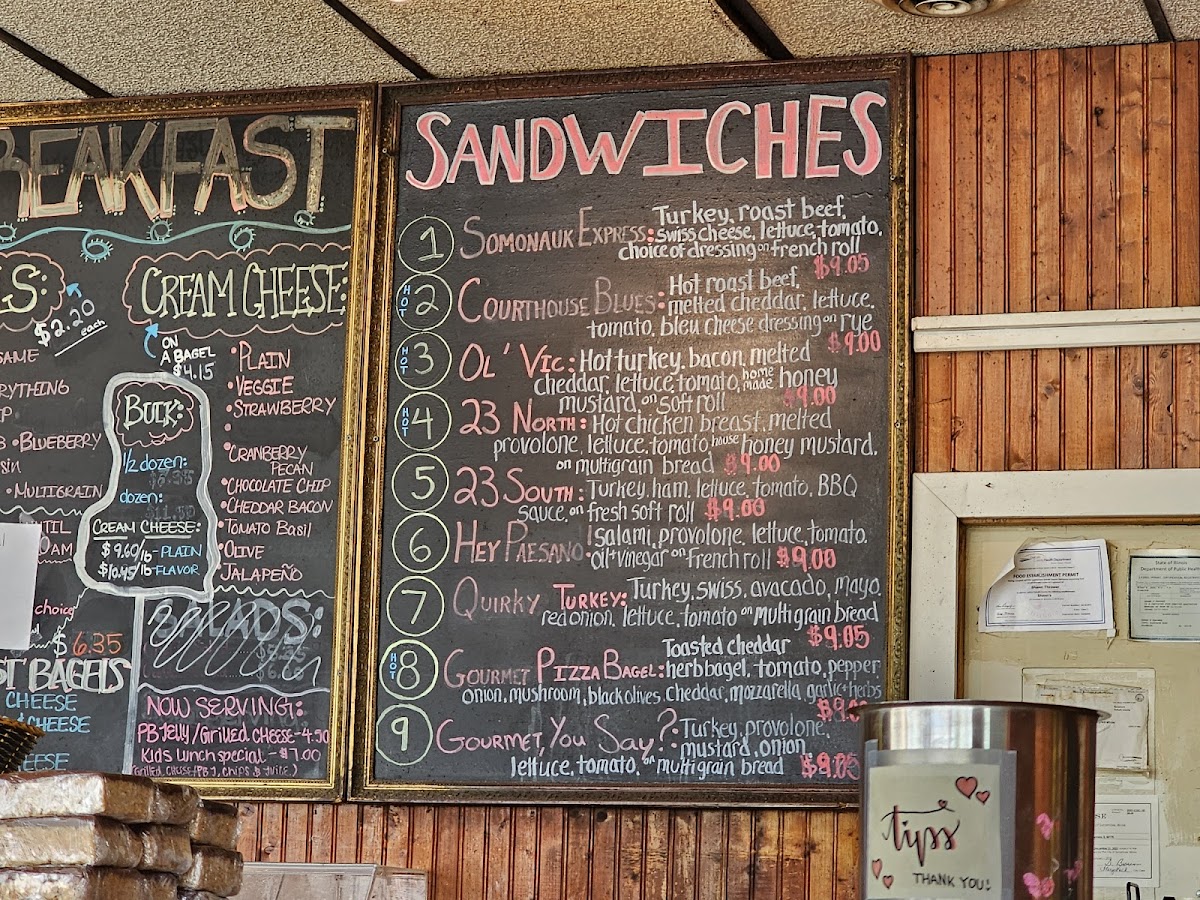 BREAKFAST
S:
$2.20
each
SAME
ERYTHING
• BLUEBERRY
• MULTIGRAIN
CREAM CHEESE:
ON
A BAGEL
$4.15
• PLAIN
• VEGGIE
• STRAWBERRY
• CRANBERRY
PECAN
• CHOCOLATE CHIP
• CHEDDAR BACON
• TOMATO BASIL
• OLIVE
JALAPEÑO
BULK:
1/2 dozen:
dozen:
CREAM CHEESE:
$9.60/lb - PLAIN
$10.45/lb - FLAVOR
choice
$6.35
BAGELS
CHEESE
CHEESE
EESE
SALADS:
NOW SERVING:
PB Jelly/Grilled CHEESE - 4.50
Kids Lunch special - $7.00
SANDWICHES
1 SOMONAUK EXPRESS: Turkey, roast beef,
swiss cheese, lettuce, tomato,
choice of dressing on french roll
$9.05
HOT 2 COURTHOUSE BLUES: Hot roast beef,
melted cheddar, lettuce,
tomato, bleu cheese dressing on rye
$9.00
HOT 3 OL' VIC: Hot turkey, bacon, melted
cheddar, lettuce, tomato, home made honey
mustard, on soft roll $9.00
HOT 4 23 NORTH: Hot chicken breast, melted
provolone, lettuce, tomato house honey mustard,
on multigrain bread $9.00
5 23 SOUTH: Turkey, ham, lettuce, tomato, BBQ
sauce, on fresh soft roll $9.00
6 HEY PAESANO: salami, provolone, lettuce, tomato,
oil + vinegar on french roll $9.00
7 QUIRKY TURKEY: Turkey, swiss, avocado, mayo,
red onion, lettuce, tomato on multigrain bread
$9.05
HOT 8 GOURMET PIZZA BAGEL: Toasted cheddar
herb bagel, tomato, pepper
onion, mushroom, black olives, cheddar, mozzarella, garlic + herbs
9 GOURMET, YOU SAY?: Turkey, provolone,
mustard, onion
lettuce, tomato, on multigrain bread $9.05
FOOD ESTABLISHMENT PERMIT
State of Illinois
Department of Public Health
tipss
THANK YOU!